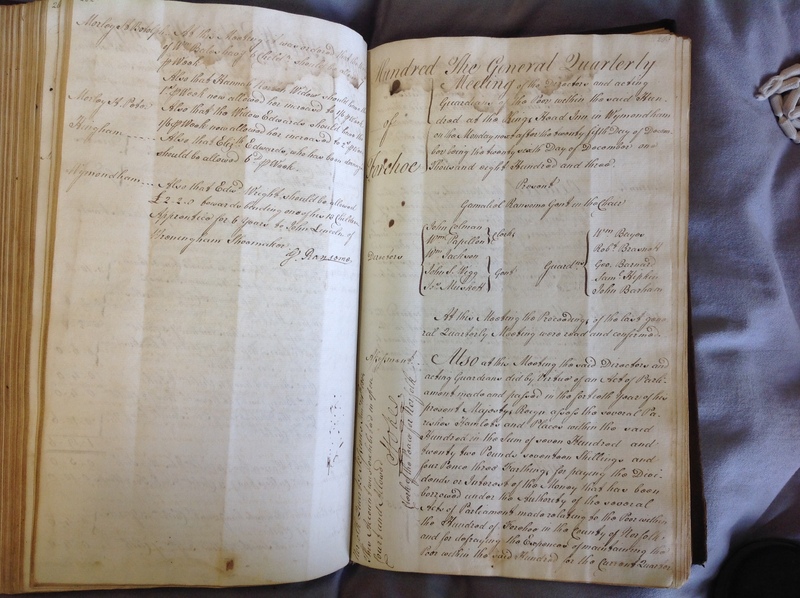 Morley St Botolph At this Meeting it was ordered that the
of Wm should be
p Week
Also that Hannah Widow should have the
1s p Week now allowed her increased to 1/6 p Week
Morley St Peter Also that the Widow Edwards should have the
1/6 p Week now allowed her increased to 2s p Week
Hingham Also that Elizth Edwards, who has been
should be allowed 6d p Week
Wymondham Also that Edwd Wright should be allowed
£2.2.0 towards binding one of his Children
Apprentice for 6 Years to John Lincoln of
Wreningham Shoemaker
G. Ransome
Hundred The General Quarterly
Meeting of the Directors and acting
Guardians of the Poor within the said Hun-
of dred at the Kings Head Inn in Wymondham
on the Monday next after the twenty fifth Day of Decem-
ber being the twenty sixth Day of December one
Forehoe Thousand eight Hundred and three
Present
Gamaliel Ransome Gent in the Chair
John Colman
Wm Papillon Clerks
Wm Jackson
Directors
John S. Wigg
Jas Muskett Gent
Guardns
Wm Bayes
Robt Brasnett
Geo. Barnard
Saml Hipkin
John Barham
At this Meeting the Proceedings of the last gene-
ral Quarterly Meeting were read and confirmed
Assessment Also at this Meeting the said Directors and
acting Guardians did by Virtue of an Act of Parli-
ament made and passed in the fortieth Year of his
present Majestys Reign assess the several Pa-
rishes Hamlets and Places within the said
Hundred in the Sum of seven Hundred and
twenty two Pounds seventeen Shillings and
four Pence three Farthings for paying the Divi-
dends or Interest of the Money that has been
borrowed under the Authority of the several
Acts of Parliament made relating to the Poor within
the Hundred of Forehoe in the County of Norfolk
and for defraying the Expences of maintaining the
Poor within the said Hundred for the Current Quarter
Clerk of the Peace for Norfolk